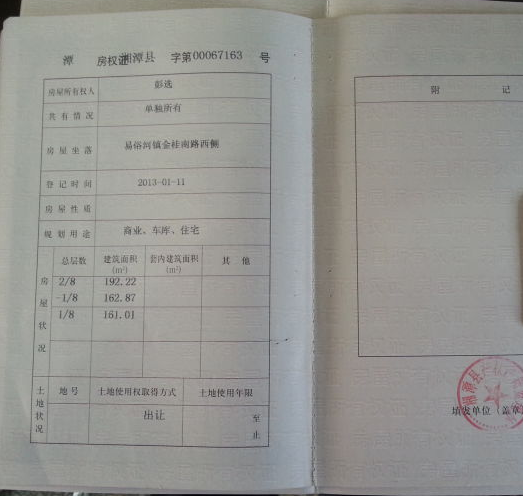 潭 房权证湘潭县 字第00067163 号
房屋所有权人 彭选
共有情况 单独所有
房屋坐落 易俗河镇金桂南路西侧
登记时间 2013-01-11
房屋性质
规划用途 商业、车库、住宅
房屋状况 总层数 建筑面积(m²) 套内建筑面积(m²) 其他
2/8 192.22
-1/8 162.87
1/8 161.01
土地状况 地号 土地使用权取得方式 土地使用年限
出让 至 止
附 记
填发单位(盖章